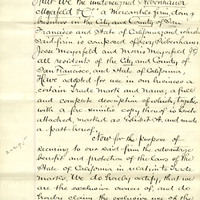 That We the undersigned
Meyerfeld & Co a Mercantile firm doing
business in the City and County of San
Francisco and State of California and which
said firm is composed of
Jesse Meyerfeld and Morris Meyerfeld Jr
all residents of the City and County of
San Francisco, and State of California,
Have adopted for use in our business a
certain Trade Mark and Name, a full and
complete description of which, together
with a fac simile copy thereof is hereto
attached, marked as Exhibit A, and made
a part hereof.
Now for the purpose of
securing to our said firm the advantage
benefit and protection of the laws of the
State of California in relation to trade
marks, We do hereby certify, that we
are the exclusive owners of, and do
hereby claim the exclusive use of the